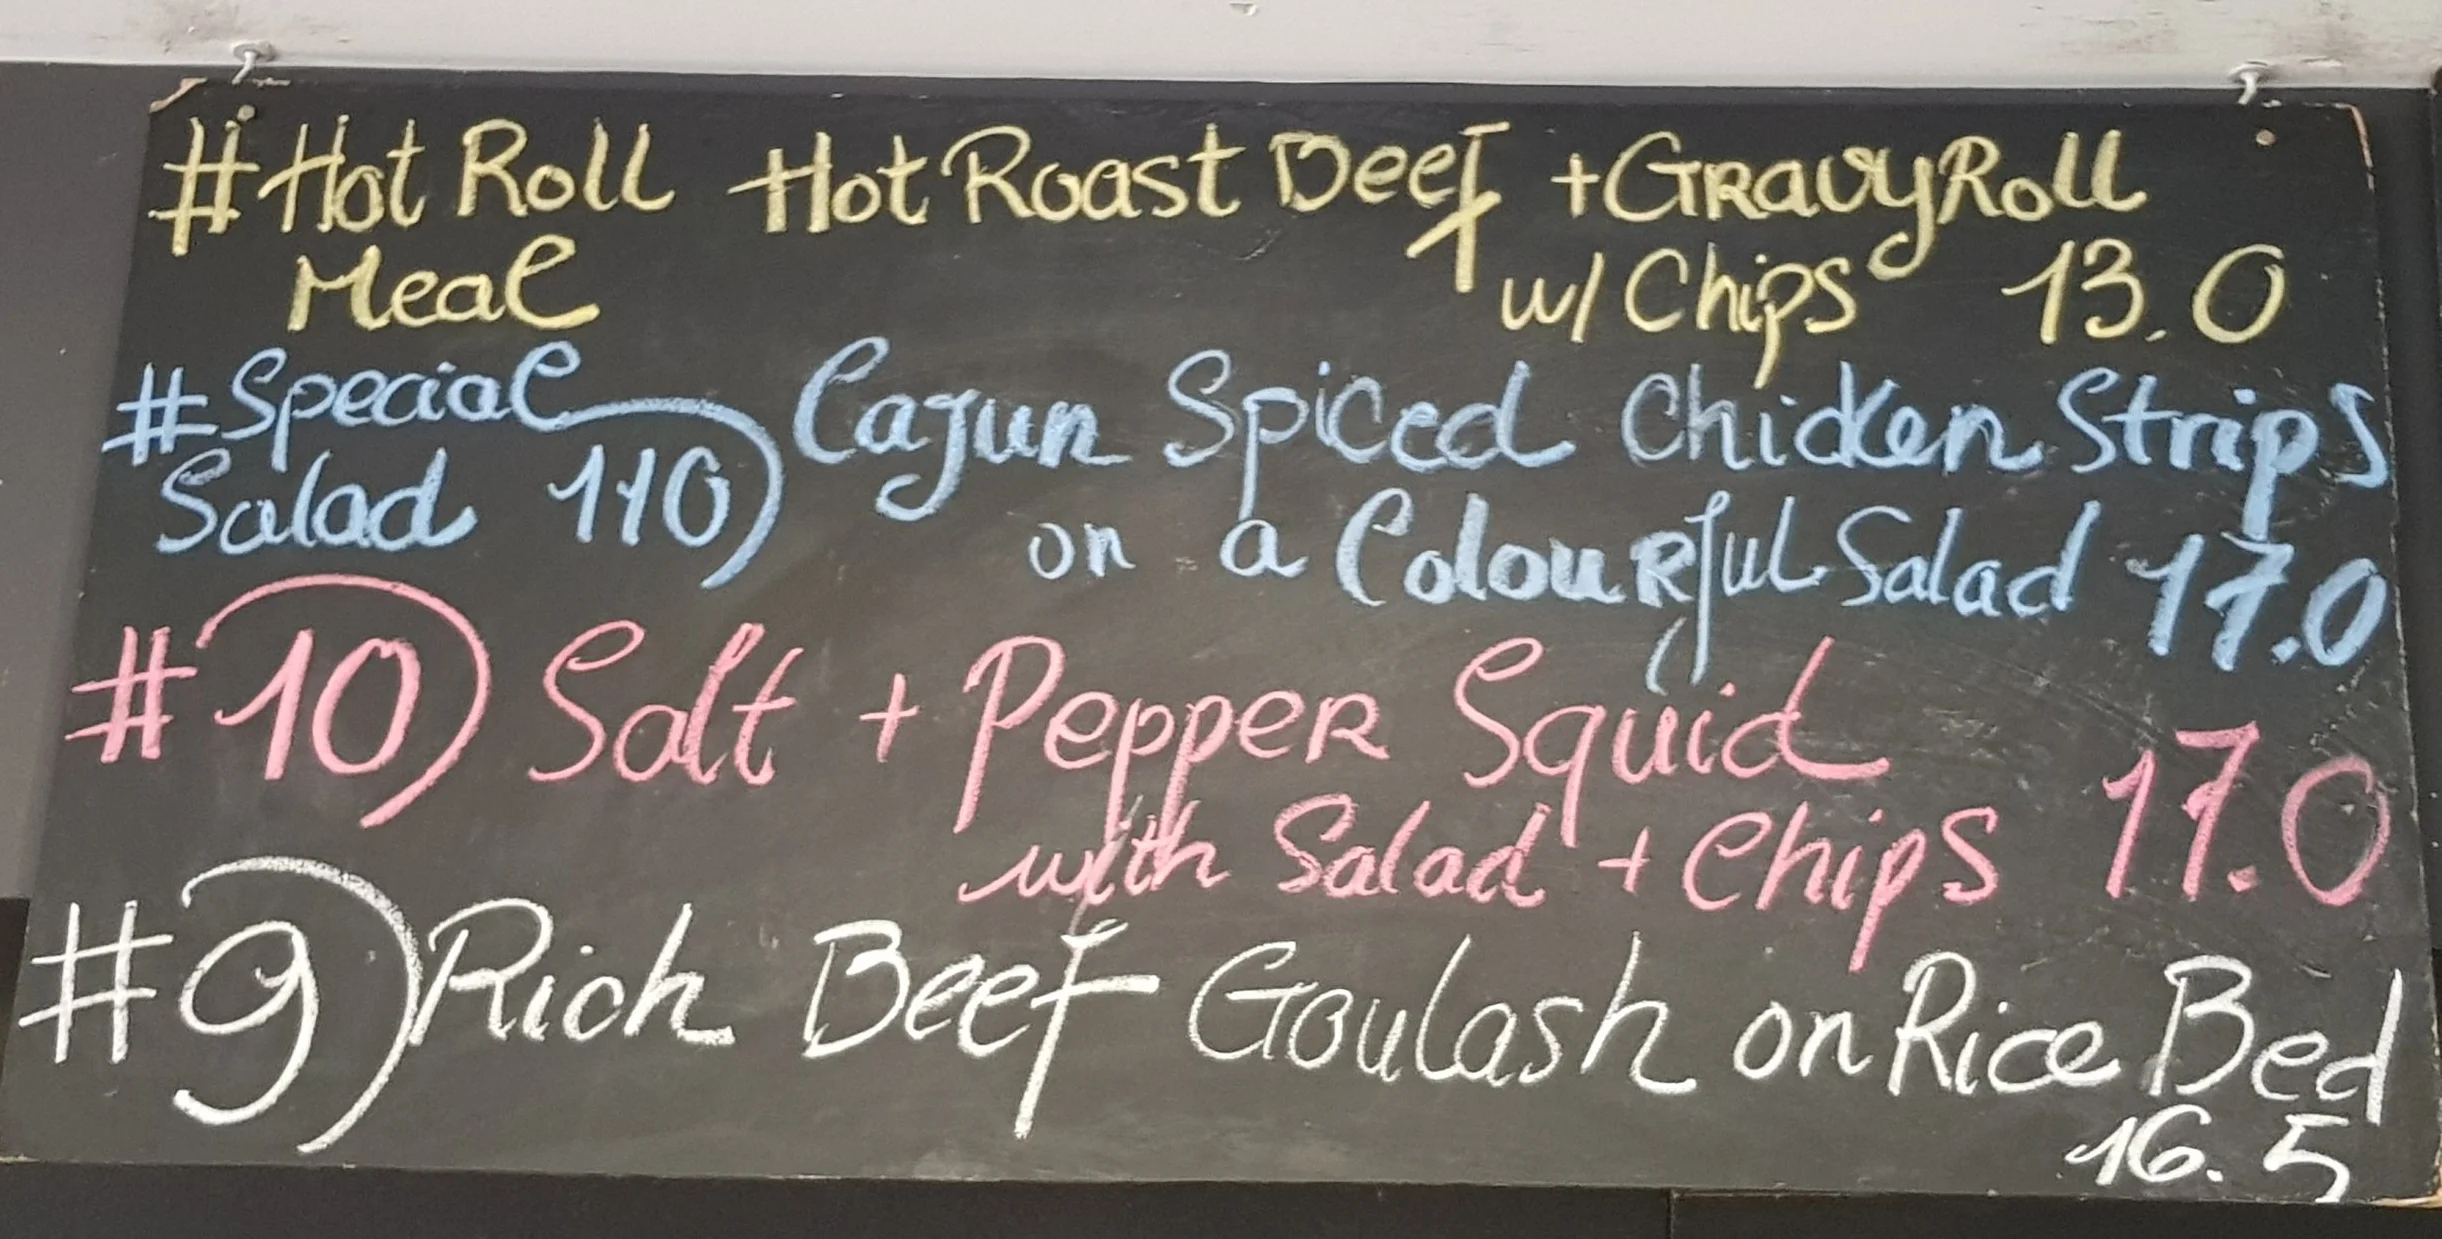 #Hot Roll Hot Roast Beef +Gravy Roll
Meal w/ Chips 13.0
#Special Cajun Spiced Chicken Strips
Salad 110) on a Colourful Salad 17.0
#10) Salt + Pepper Squid 17.0
with Salad + Chips
#9) Rich Beef Goulash on Rice Bed
16.5